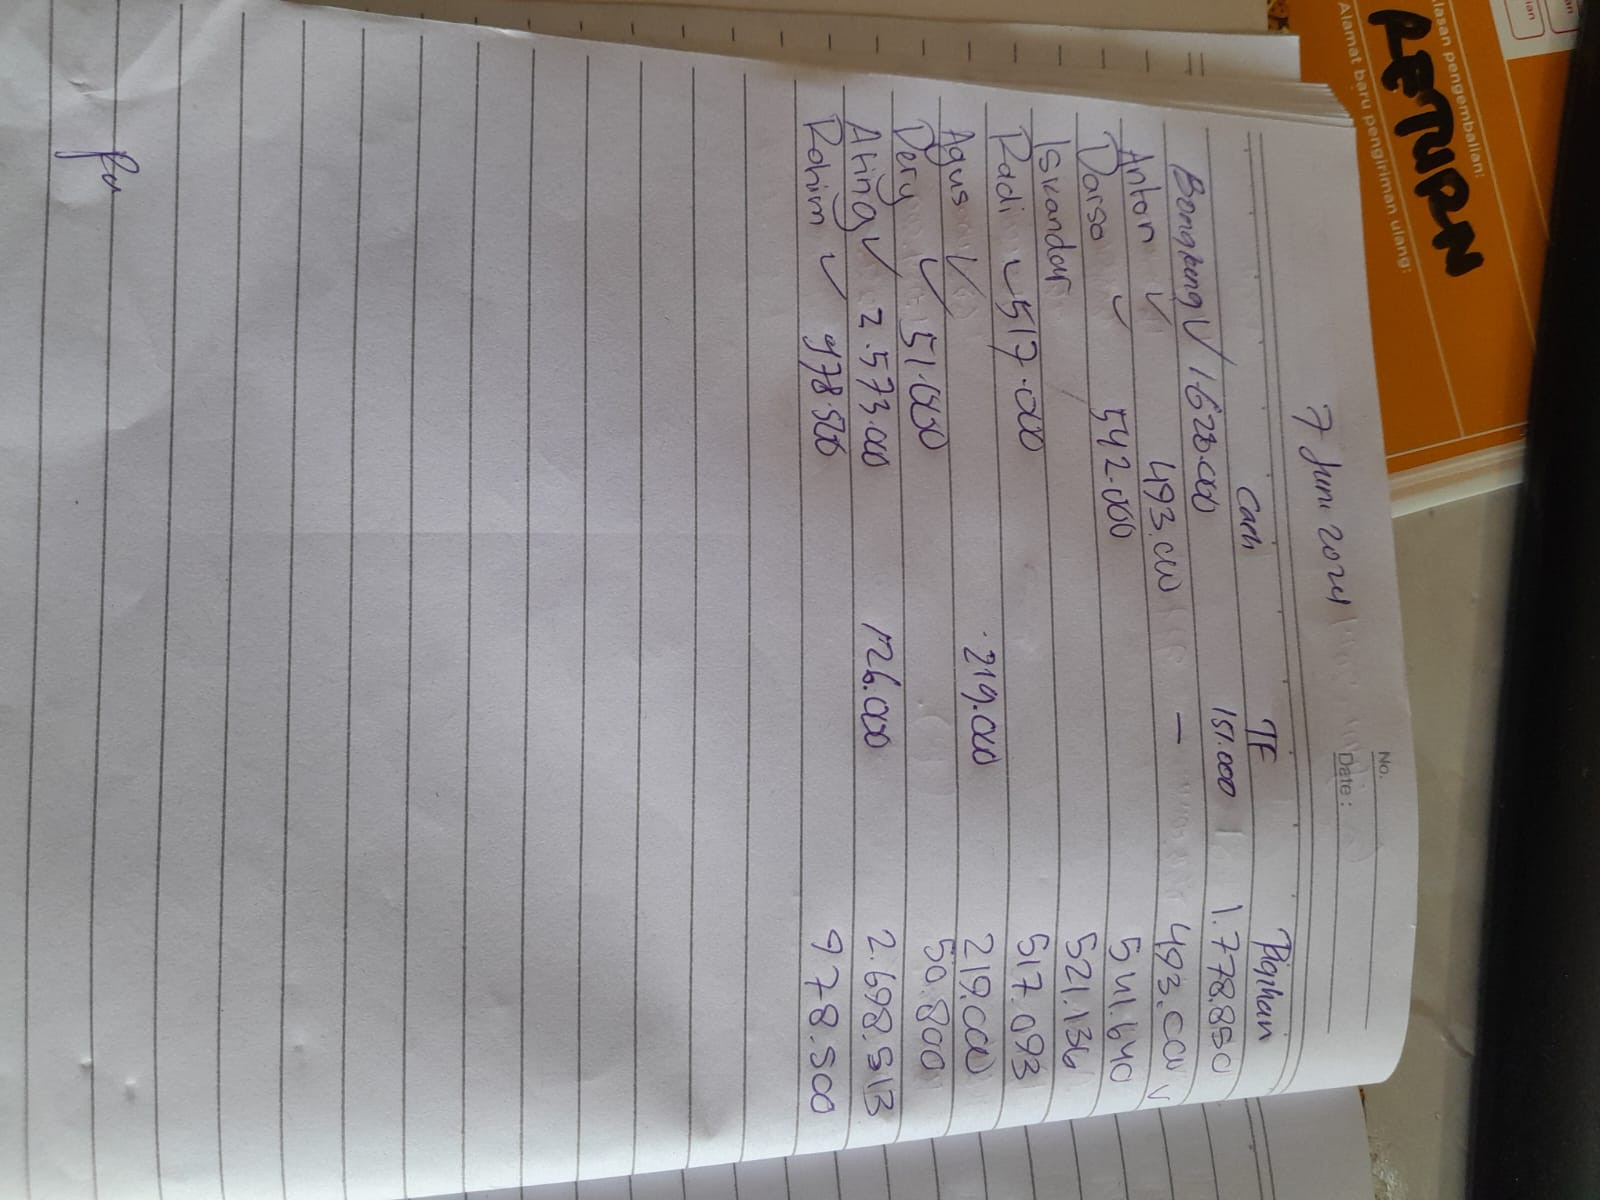 lasan pengembalian:
Alamat baru pengiriman ulang:
RETURN
No.
Date :
7 Juni 2024
Cash TF Piqihan
Bangkong √ 1.628.000 151.000 1.778.850
Anton √ 493.000 — 493.000 √
Darso √ 542.000 541.640
Iskandar 521.136
Radi √ 517.000 517.093
Agus √ 219.000 219.000
Dery √ 51.000 50.800
Ating √ 2.573.000 126.000 2.698.513
Rohim √ 978.500 978.500